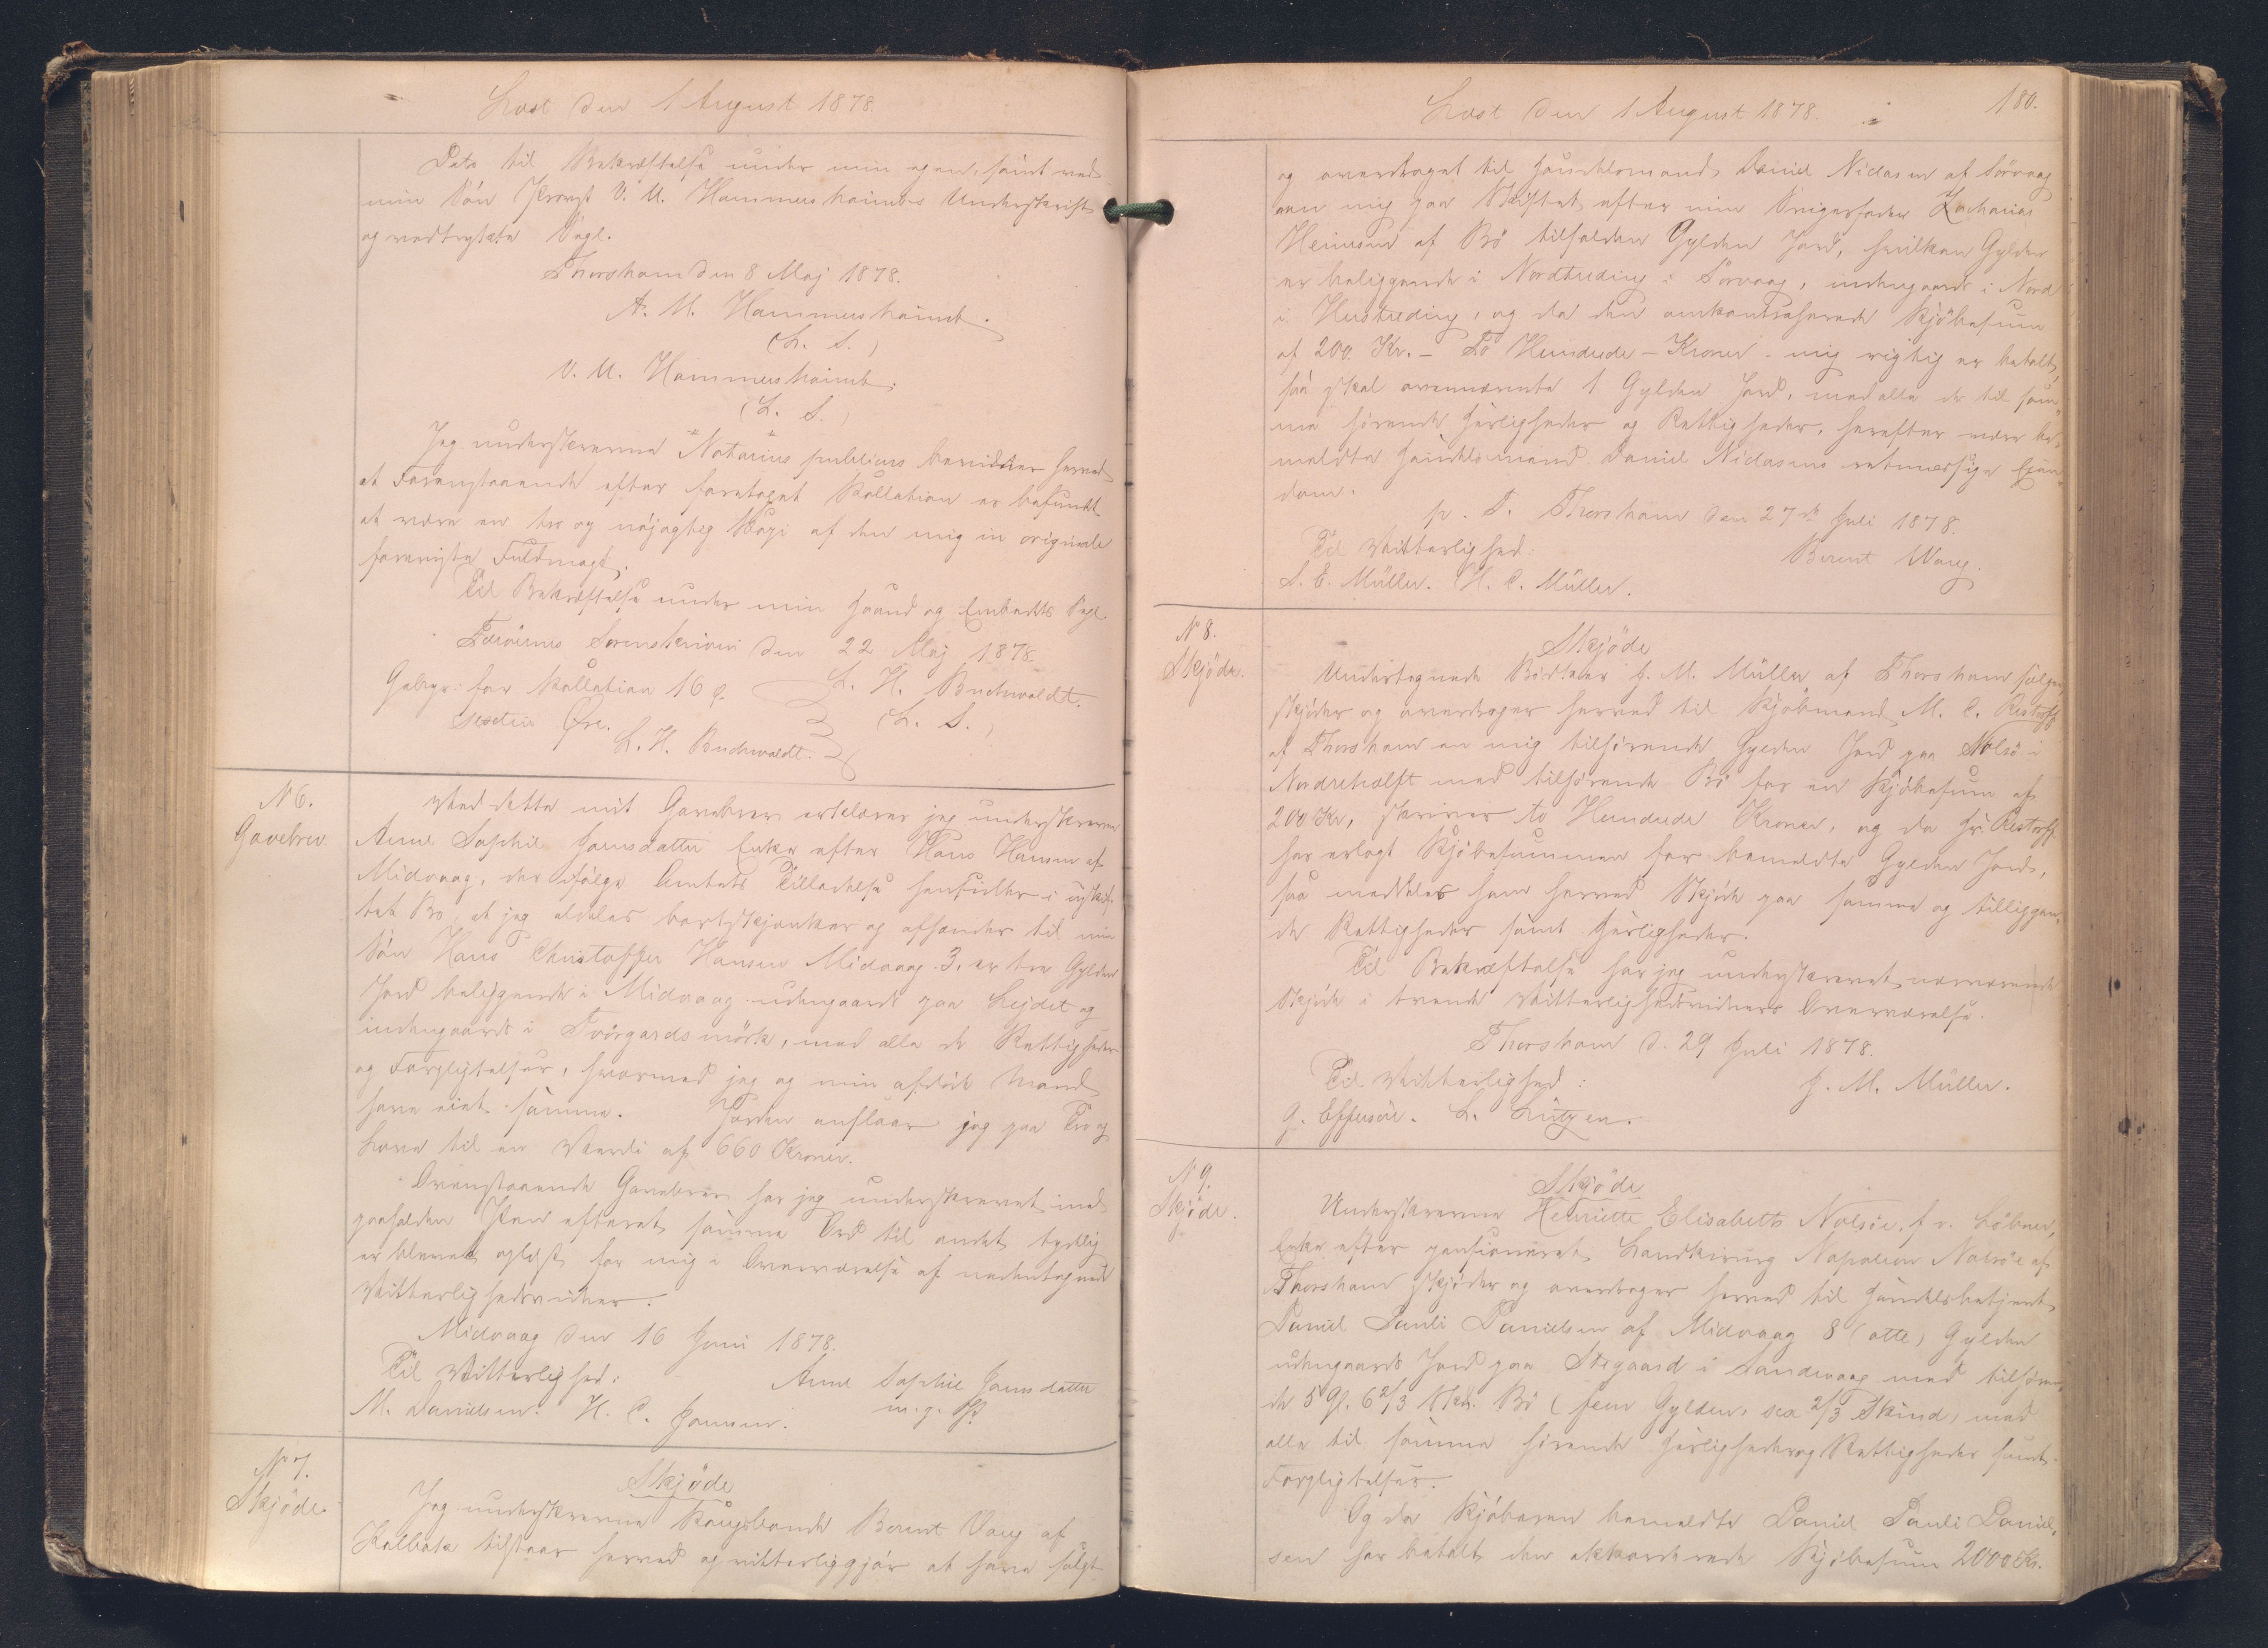 Læst den 1 August 1878.
Dets til Bekræftelse under min egen, samt ved
min Søn Provst V. U. Hammershaimbs Underskrift
og vedtrykte Segl.
Thorshavn den 8 Maj 1878.
A. M. Hammershaimb.
(L. S.)
V. U. Hammershaimb.
(L. S.)
Jeg underskrevne "Notarius publicus" bevidner herved
at Foranstaaende efter foretaget Kollation er befundet
at være en tro og nøjagtig Kopi af den mig in originale
foreviste Fuldmagt.
Til Bekræftelse under min Haand og Embedets Segl.
Færøernes Sorenskriveri den 22 Maj 1878.
Gebyr for Kollation 16 Ø. L. H. Buchwaldt.
sexten Øre. (L. S.)
L. H. Buchwaldt.
N 6.
Gavebrev.
Ved dette mit Gavebrev erklærer jeg underskrevne
Anne Sophie Joensdatter Enke efter Hans Hansen af
Midvaag, der ifølge Amtets Tilladelse hensidder i uskif-
tet Bo, at jeg aldeles bortskjenker og afhænder til min
Søn Hans Christoffer Hansen Midvaag 3, er tre Gylden
Jord beliggende i Midvaag udengaards paa Lejdet og
indengaards i Tvörgardsmörk, med alle de Rettigheder
og Forpligtelser, hvormed jeg og min afdøde Mand
have eiet samme. Jorden anslaar jeg paa Tro og
Love til en Værdi af 660 Kroner.
Ovenstaaende Gavebrev har jeg underskrevet med
paaholden Pen efterat samme Ord til andet tydelig
er blevet oplæst for mig i Overværelse af nedentegnede
Vitterlighedsvidner.
Midvaag den 16 Juni 1878.
Til Vitterlighed: Anne Sophie Joensdatter
M. Danielsen. H. C. Joensen. m. p. P.
N 7.
Skjøde.
Skjøde
Jeg underskrevne Kongsbonde Berent Vang af
Kalbak tilstaar herved og vitterliggjør at have solgt
Læst den 1 August 1878. 180.
og overdraget til Handelsmand Daniel Niclasen af Sörvaag
een mig paa Skiftet efter min Svigerfader Zacharias
Heinesen af Bø tilfalden Gylden Jord, hvilken Gylden
er beliggende i Nordtreding i Sörvaag, indengaards i Nord
i Hustreding, og da den omkontraherede Kjøbesum
af 200 Kr. - To Hundrede - Kroner - mig rigtig er betalt,
saa skal ovennævnte 1 Gylden Jord, med alle de til sam-
me hørende Herligheder og Rettigheder, herefter være be-
meldte Handelsmand Daniel Niclasens retmæssige Eien-
dom.
p. T. Thorshavn den 27de Juli 1878.
Til Vitterlighed: Berent Vang.
S. E. Müller. H. C. Müller.
N 8.
Skjøde.
Skjøde
Undertegnede Birkeler J. M. Müller af Thorshavn sælger,
skjøder og overdrager herved til Kjøbmand M. C. Restorff
af Thorshavn en mig tilhørende Gylden Jord paa Nolsö i
Nordrehælft med tilhørende Bø for en Kjøbesum af
200 Kr, skriver to Hundrede Kroner, og da Hr. Restorff
har erlagt Kjøbesummen for bemeldte Gylden Jord,
saa meddeles ham herved Skjøde paa samme og tilliggen-
de Rettigheder samt Herligheder.
Til Bekræftelse har jeg underskrevet nærværende
Skjøde i tvende Vitterlighedsvidners Overværelse.
Thorshavn d. 29 Juli 1878.
Til Vitterlighed: J. M. Müller.
G. Effersöe. L. Lützen.
N 9.
Skjøde.
Skjøde
Underskrevne Henriette Elisabeth Nolsöe, f. v. Löbner,
Enke efter pensioneret Landkirurg Napoleon Nolsöe af
Thorshavn skjøder og overdrager herved til Handelsbetjent
Daniel Pauli Danielsen af Midvaag 8 (otte) Gylden
udengaards Jord paa Stegaard i Sandevaag med tilhøren-
de 5 Gl. 6 2/3 Skd. Bø (fem Gylden, sex 2/3 Skind) med
alle til samme hørende Herligheder og Rettigheder samt
Forpligtelser.
Og da Kjøberen bemeldte Daniel Pauli Daniel-
sen har betalt den akkorderede Kjøbesum 2000 Kr.